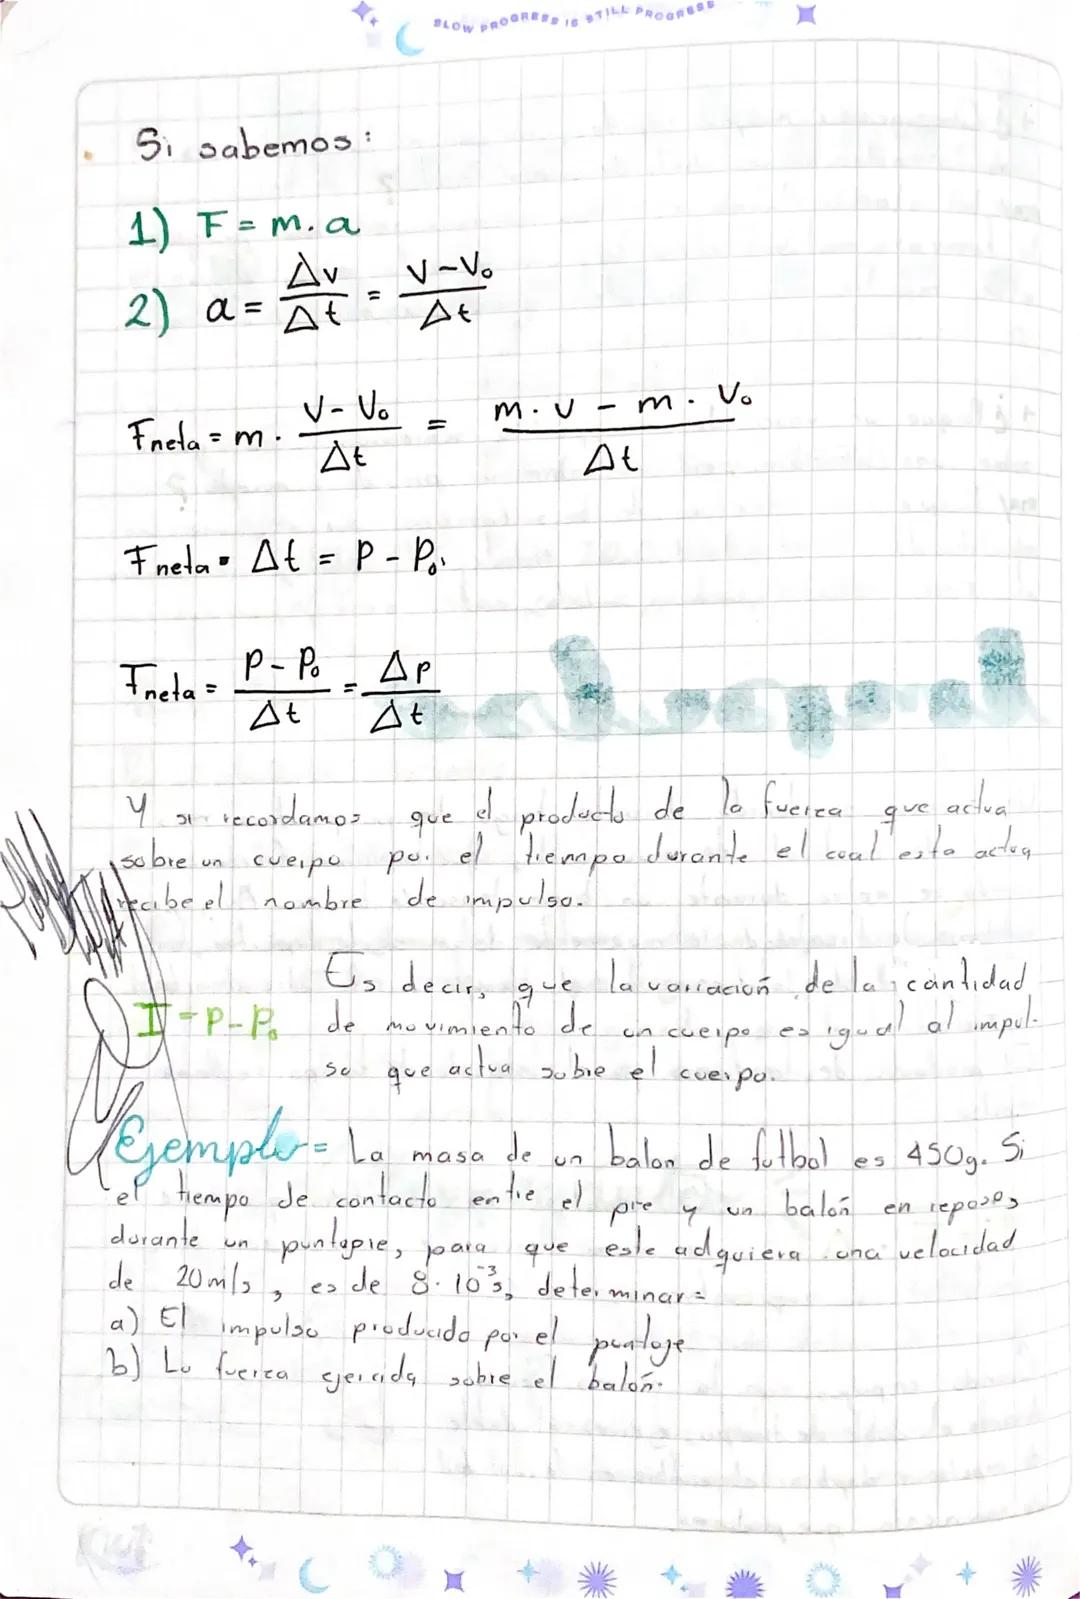 SLOW PROGRESS IS STILL PROGRESS
Si sabemos:
1) F = m. a
2) a = Δv/Δt = V-V₀/Δt
Fneta = m · V-V₀/Δt = m · v - m · V₀/Δt
Fneta · Δt = P - P₀
Fneta = P-P₀/Δt = Δp/Δt
Y si recordamos que el producto de la fuerza que actua
sobre un cuerpo por el tiempo durante el cual esta actua
recibe el nombre de impulso.
Es decir, que la variación de la cantidad
I = P-P₀ de movimiento de un cuerpo es igual al impul-
so que actua sobre el cuerpo.
Ejemplo= La masa de un balon de futbol es 450g. Si
el tiempo de contacto entre el pie y un balón en reposo,
durante un puntapie, para que este adquiera una velocidad
de 20m/s, es de 8·10⁻³s, determinar=
a) El impulso producido por el
b) La fuerza ejercida sobre el balón.